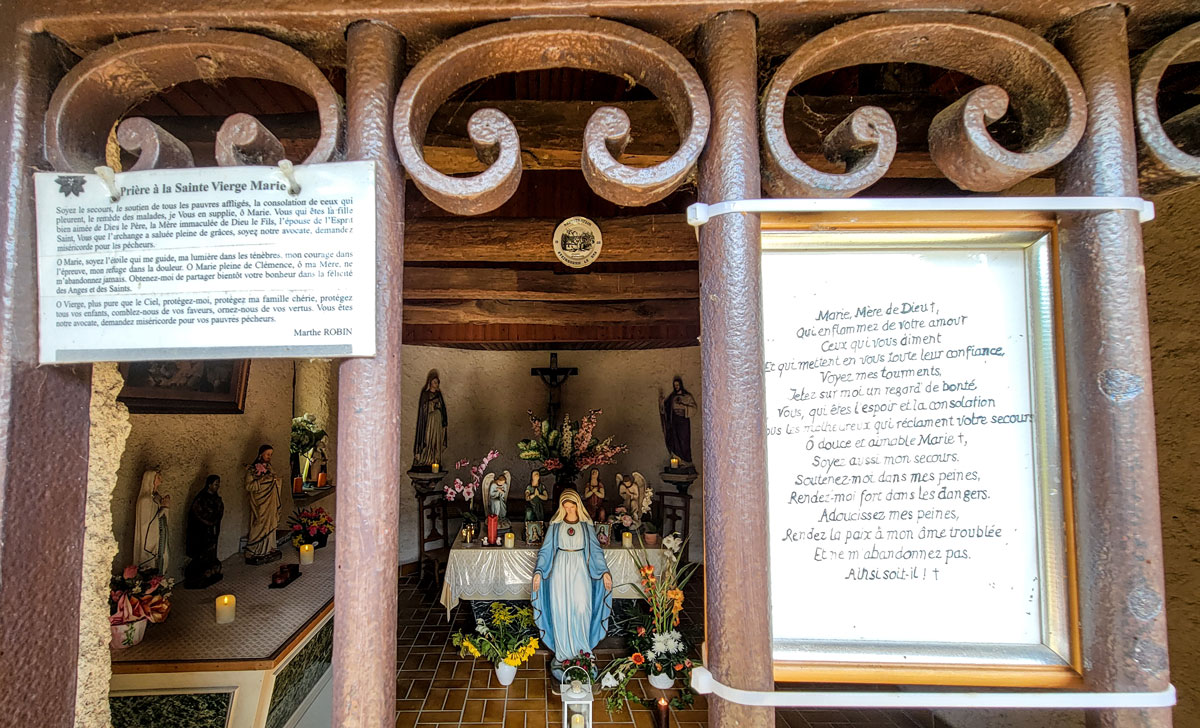 Prière à la Sainte Vierge Marie
Soyez le secours, le soutien de tous les pauvres affligés, la consolation de ceux qui
pleurent, le remède des malades, je Vous en supplie, ô Marie. Vous qui êtes la fille
bien aimée de Dieu le Père, la Mère immaculée de Dieu le Fils, l'épouse de l'Esprit
Saint, Vous que l'archange a saluée pleine de grâces, soyez notre avocate, demandez
miséricorde pour les pécheurs.
O Marie, soyez l'étoile qui me guide, ma lumière dans les ténèbres, mon courage dans
l'épreuve, mon refuge dans la douleur. O Marie pleine de Clémence, ô ma Mère, ne
m'abandonnez jamais. Obtenez-moi de partager bientôt votre bonheur dans la félicité
des Anges et des Saints.
O Vierge, plus pure que le Ciel, protégez-moi, protégez ma famille chérie, protégez
tous vos enfants, comblez-nous de vos faveurs, ornez-nous de vos vertus. Vous êtes
notre avocate, demandez miséricorde pour vos pauvres pécheurs.
Marthe ROBIN
Marie, Mère de Dieu†,
Qui enflammez de votre amour
Ceux qui vous aiment
Et qui mettent en vous toute leur confiance,
Voyez mes tourments,
Jetez sur moi un regard de bonté.
Vous, qui êtes l'espoir et la consolation
ous les malheureux qui réclament votre secours
Ô douce et aimable Marie†,
Soyez aussi mon secours.
Soutenez-moi dans mes peines,
Rendez-moi fort dans les dangers.
Adoucissez mes peines,
Rendez la paix à mon âme troublée
Et ne m'abandonnez pas.
Ainsi soit-il ! †